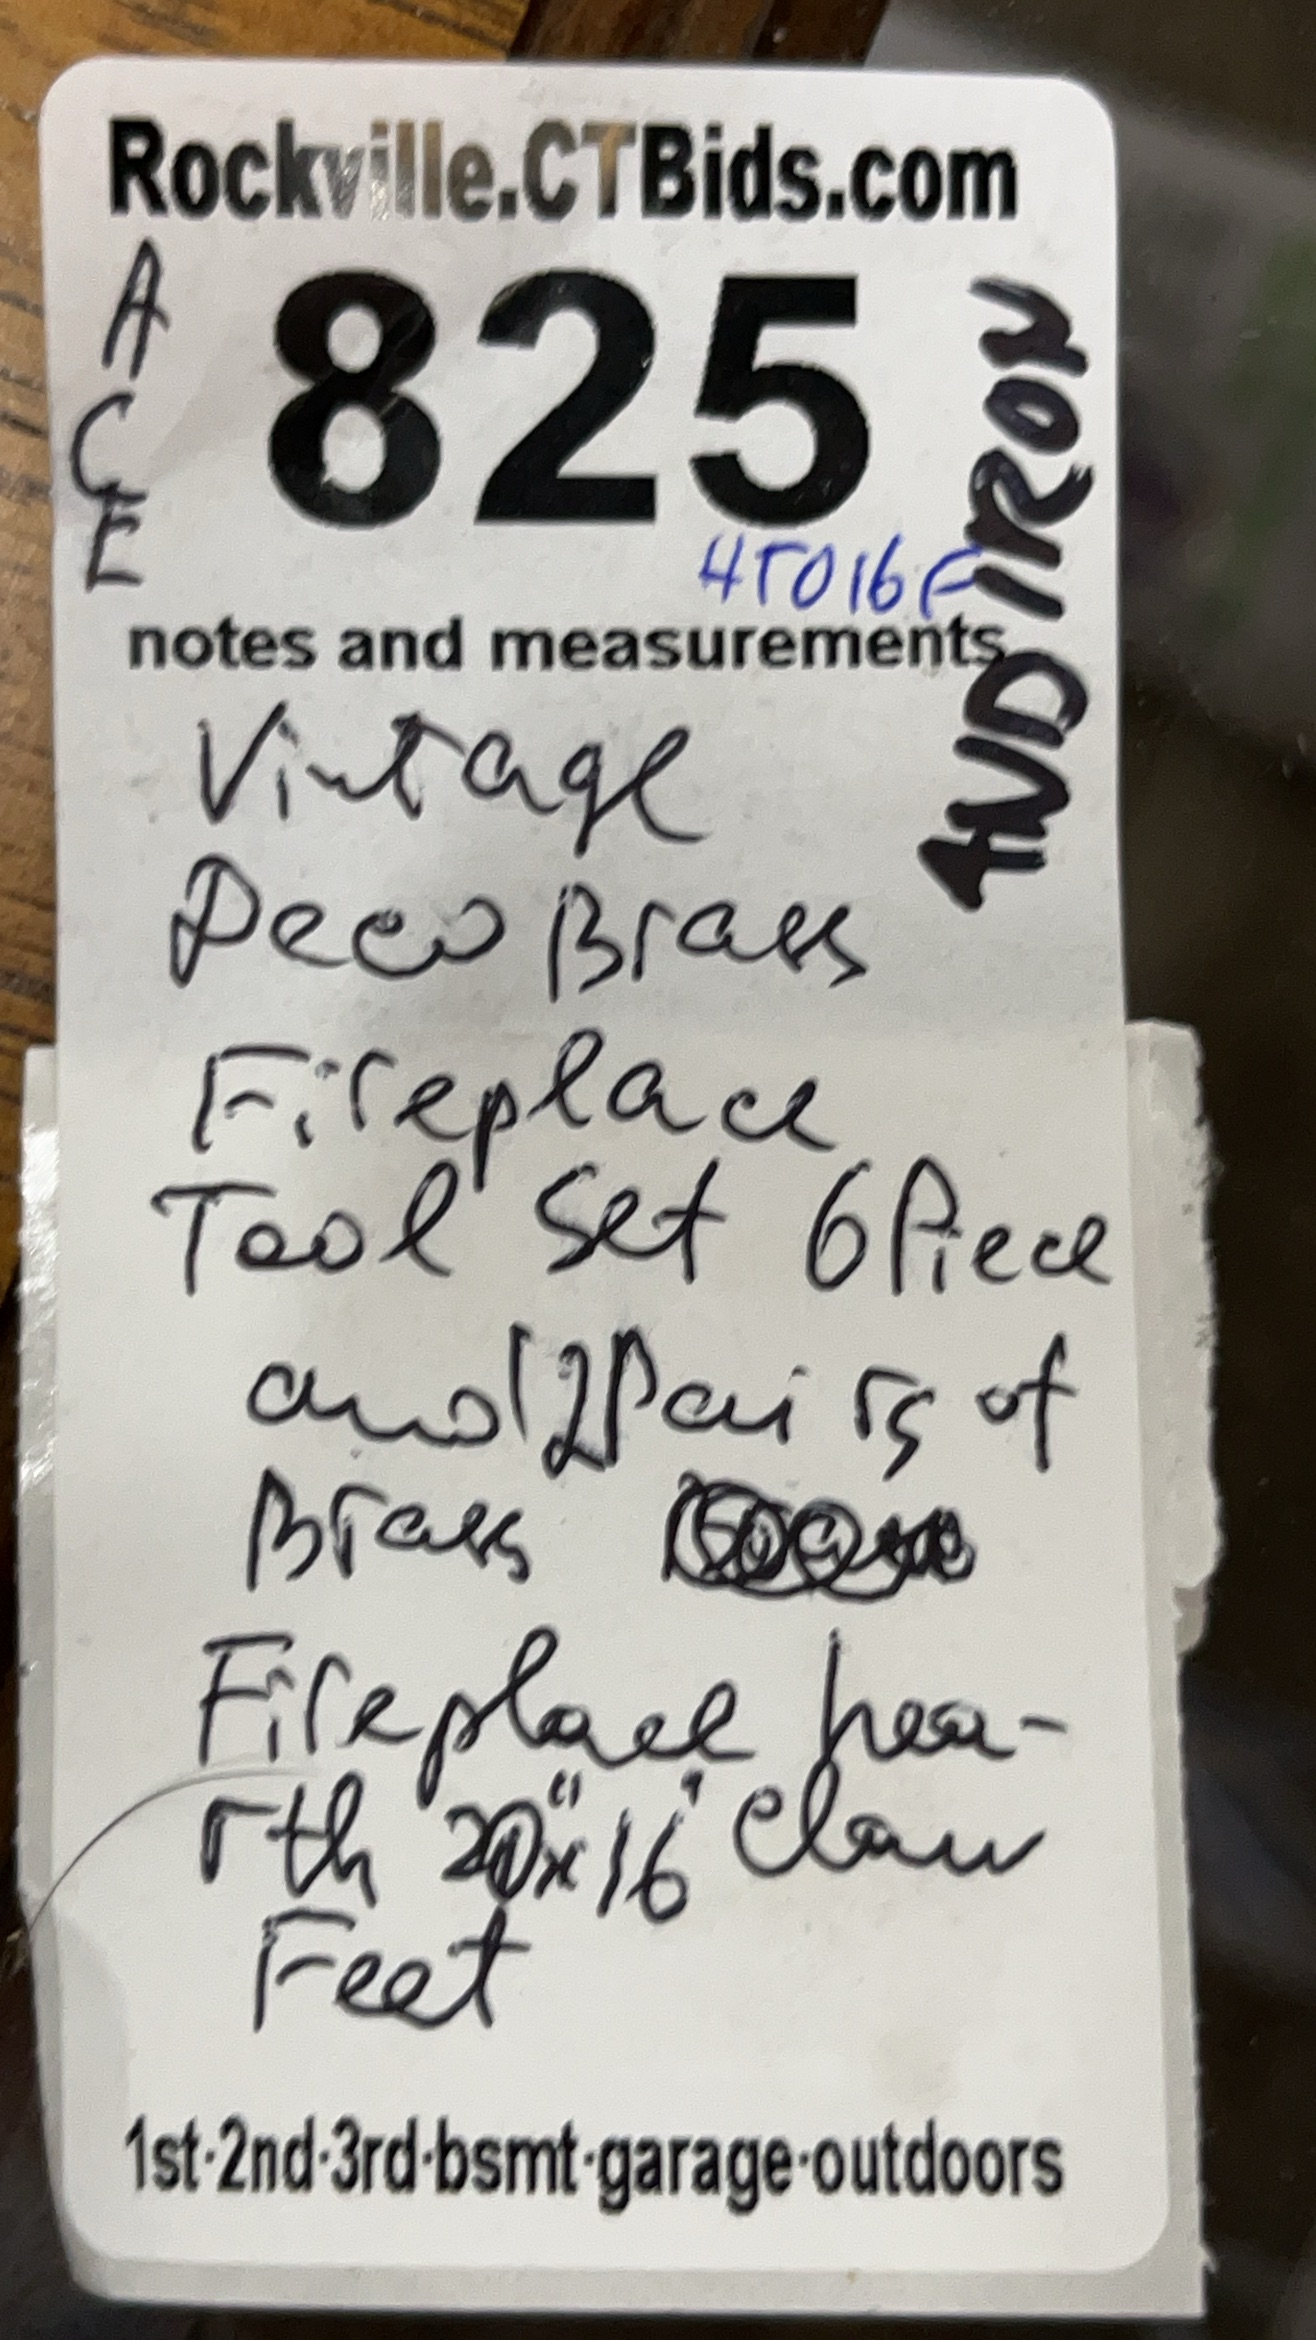 Rockville.CTBids.com
A
C
E
825
ANDIRON
4T016F
notes and measurements
Vintage
Deco Brass
Fireplace
Tool Set 6 Piece
and 2 Pairs of
Brass
Fireplace hea-
rth 20"x16" Claw
Feet
1st·2nd·3rd·bsmt·garage·outdoors